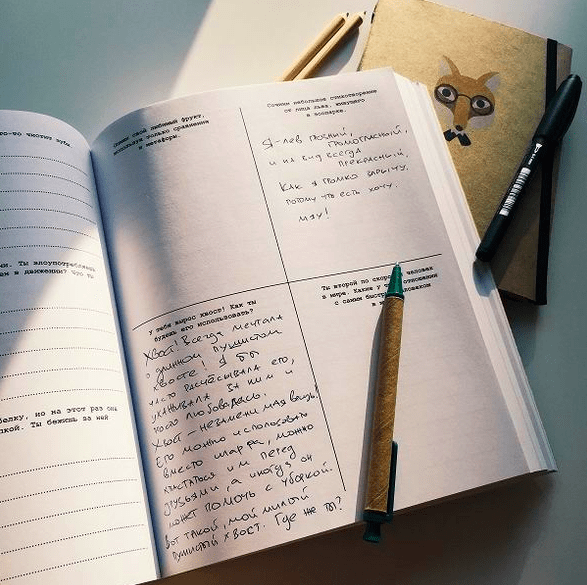 чистит зубы
Ты злоупотребляешь
в движении?
белку, но на этот раз она
Ты бежишь за ней
Опиши свой любимый фрукт,
используя только сравнения
и метафоры.
Сочини небольшое стихотворение
от лица льва, живущего
в зоопарке.
Я-лев поэний,
громогласный,
и на вид всегда
прекрасный,
Как я громко зарычу,
потому что есть хочу.
мяу!
У тебя вырос хвост! Как ты
будешь его использовать?
Хвост! Всегда мечтала
о длинном пушистом
хвосте! Я бы
часто расчёсывала его,
ухаживала за ним и
просто любовалась.
Хвост - незаменимая вещь!
Его можно использовать
вместо шарфа, можно
хвастаться им перед
друзьями, а иногда он
может помочь с уборкой.
Вот такой, мой милый
пушистый хвост. Где же ты?
Ты второй по скорости человек
в мире. Какие у отношения
с самым быстрым человеком
в